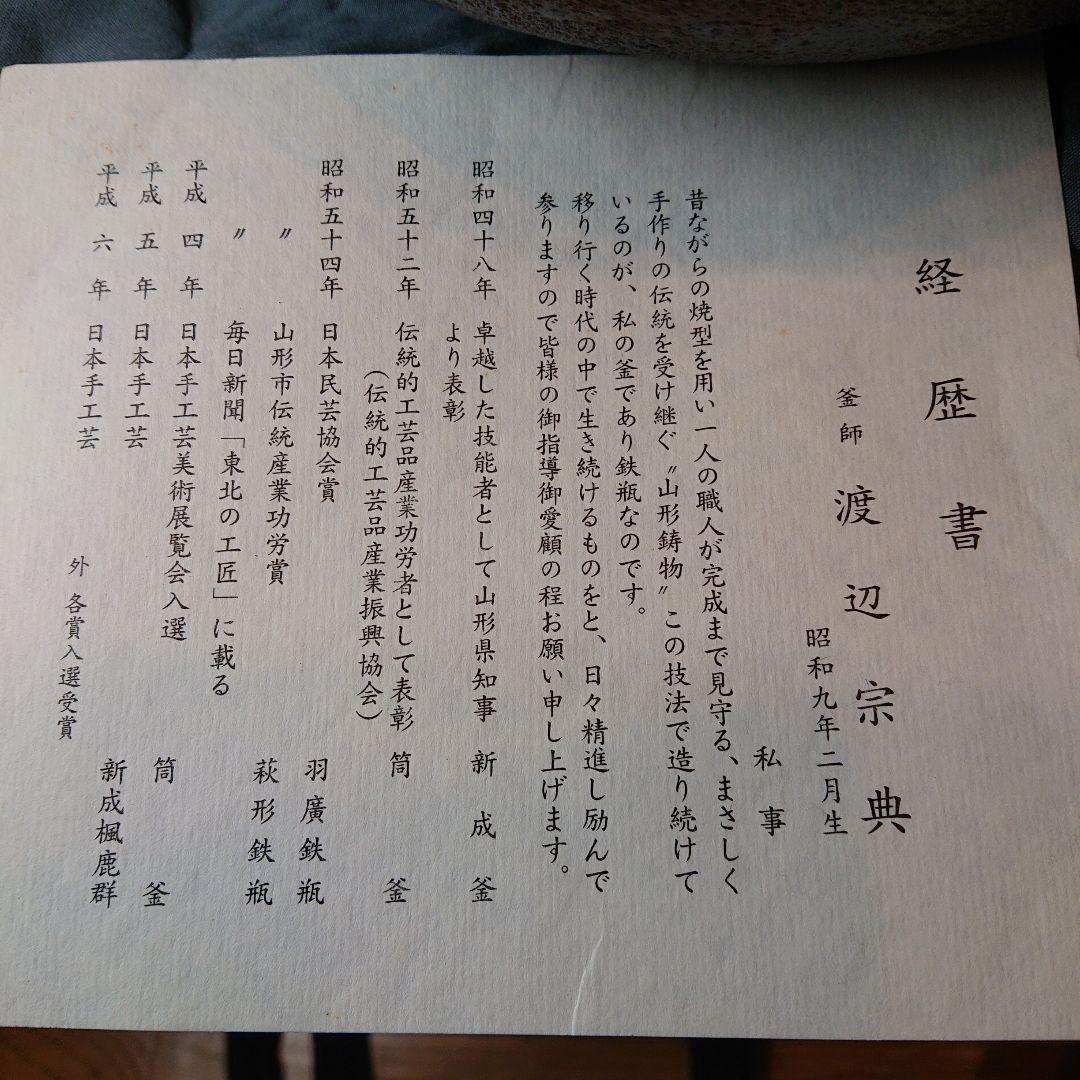 経歴書
釜師 渡辺宗典
昭和九年二月生
私事
昔ながらの焼型を用い一人の職人が完成まで見守る、まさしく
手作りの伝統を受け継ぐ〝山形鋳物〟この技法で造り続けて
いるのが、私の釜であり鉄瓶なのです。
移り行く時代の中で生き続けるものをと、日々精進し励んで
参りますので皆様の御指導御愛顧の程お願い申し上げます。
昭和四十八年 卓越した技能者として山形県知事 新成釜
より表彰
昭和五十二年 伝統的工芸品産業功労者として表彰 筒釜
(伝統的工芸品産業振興協会)
昭和五十四年 日本民芸協会賞 羽廣鉄瓶
〃 山形市伝統産業功労賞 萩形鉄瓶
〃 毎日新聞「東北の工匠」に載る
平成四年 日本手工芸美術展覧会入選 筒釜
平成五年 日本手工芸 新成楓鹿群
平成六年 日本手工芸
外 各賞入選受賞